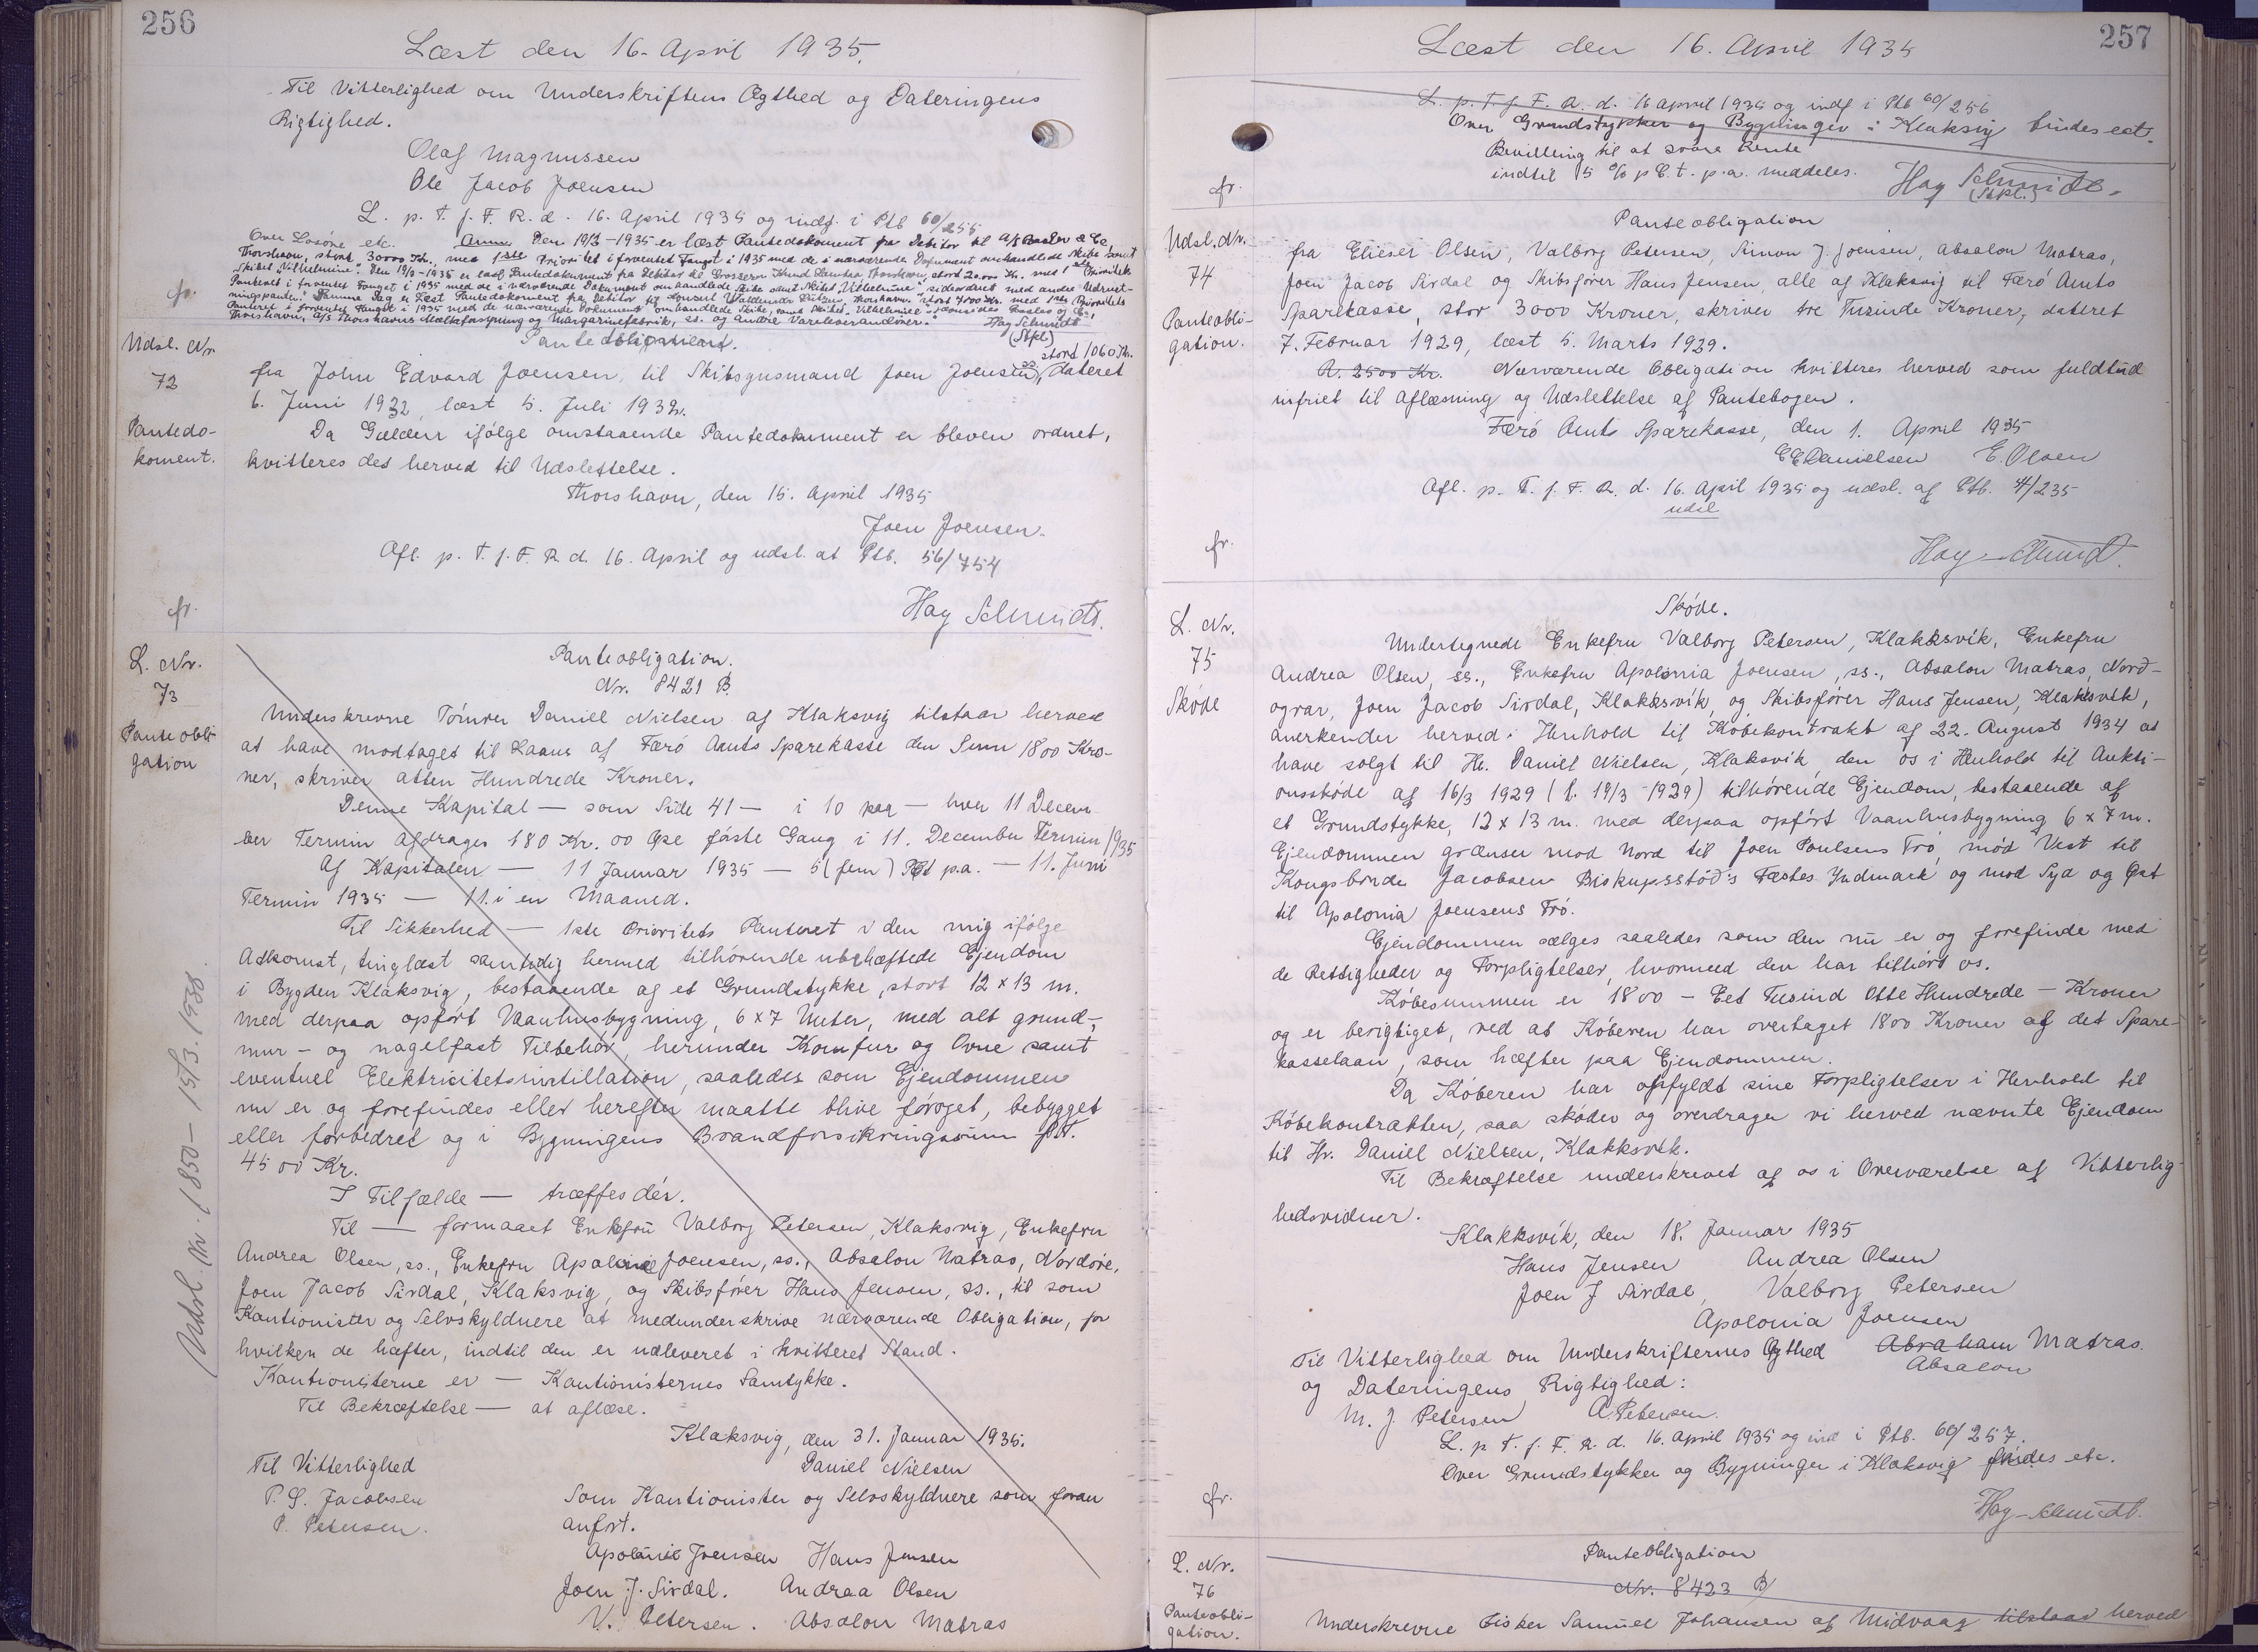 256
Læst den 16. April 1935.
Til Vitterlighed om Underskriftens Ægthed og Dateringens
Rigtighed.
Olaf Magnussen
Ole Jacob Joensen
L. p. T. f. F. R. d. 16. April 1935 og indf. i Ptb 60/255
Over Løsøre etc. Anm. Den 19/3-1935 er læst Pantedokument fra Debitor til A/S
Thorshavn, stort 30000 Kr., med 1ste Prioritet i forventet Fangst i 1935 med de i nærværende Dokument omhandlede Skibe samt
Skibet "Vilhelmine". Den 19/3-1935 er læst Pantedokument fra Debitor til Grosserer Knud Thorshavn, stort 20.000 Kr. med 1ste Prioritets
Panteret i forventet Fangst i 1935 med de i nærværende Dokument omhandlede Skibe samt Skibet "Vilhelmine" sideordnet med andre Udrust-
ningspanter. Samme Dag er læst Pantedokument fra Debitor til Konsul Waldemar Lützen, Thorshavn, stort 7000 Kr. med 1ste Prioritets
Panteret i forventet Fangst i 1935 med de nærværende Dokument omhandlede Skibe, samt Skibet "Vilhelmine"
Thorshavn, A/S Thorshavns Mælkeforsyning og Margarinefabrik, ss. og andre Vareleverandører. Hay Schmidt
(Stpl)
fr.
Udsl. Nr
72
Pantedo-
koment.
Panteobligation.
stort 1060 Kr.
fra John Edvard Joensen, til Skibsgusmand Joen Joensen, ss, dateret
6. Juni 1932, læst 5. Juli 1932.
Da Gælden ifølge omstaaende Pantedokument er bleven ordnet,
kvitteres det herved til Udslettelse.
Thorshavn, den 15. April 1935
Joen Joensen.
Afl. p. T. f. F. R. d. 16. April og udsl. at Ptb. 56/754
fr.
Hay Schmidt.
L. Nr.
73
Panteobli-
gation
Panteobligation.
Nr. 8421 B.
Underskrevne Tømrer Daniel Nielsen af Klaksvig tilstaar herved
at have modtaget til Laans af Færø Amts Sparekasse den Sum 1800 Kro-
ner, skriver atten Hundrede Kroner.
Denne Kapital — som Side 41 — i 10 paa — hver 11 Decem-
ber Termin afdrages 180 Kr. 00 Øre første Gang i 11. December Termin 1935
Af Kapitalen — 11 Januar 1935 — 5 (fem) Pct p.a. — 11. Juni
Termin 1935 — 11. i en Maaned.
Til Sikkerhed — 1ste Prioritets Panteret i den mig ifølge
Adkomst, tinglæst samtidig hermed tilhørende ubehæftede Ejendom
i Bygden Klaksvig, bestaaende af et Grundstykke, stort 12 x 13 m.
med derpaa opført Vaanhusbygning, 6 x 7 Meter, med alt grund-,
mur- og nagelfast Tilbehør, herunder Komfur og Ovne samt
eventuel Elektricitetsinstillation, saaledes som Ejendommen
nu er og forefindes eller herefter maatte blive forøget, bebygget
eller forbedret og i Bygningens Brandforsikringssum p.t.
4500 Kr.
I Tilfælde — træffes dér.
Til — formaaet Enkefru Valborg Petersen, Klaksvig, Enkefru
Andrea Olsen, ss., Enkefru Apolonie Joensen, ss., Absalon Matras, Nordøre,
Joen Jacob Sirdal, Klaksvig, og Skibsfører Hans Jensen, ss., til som
Kautionister og Selvskyldnere at medunderskrive nærværende Obligation, for
hvilken de hæfter, indtil den er udleveret i kvitteret Stand.
Kautionisterne er — Kautionisternes Samtykke.
Til Bekræftelse — at aflæse.
Klaksvig, den 31. Januar 1935.
Til Vitterlighed
Daniel Nielsen
P. S. Jacobsen
P. Petersen.
Som Kautionister og Selvskyldnere som foran
anført.
Apolonie Joensen Hans Jensen
Joen J. Sirdal. Andraa Olsen
V. Petersen. Absalon Matras
Udsl. Nr. 1850 - 15/3. 1938.
257
Læst den 16. April 1935
L. p. T. f. F. R. d. 16 April 1935 og indf i Ptb 60/256
Over Grundstykker og Bygninger i Klaksvig findes ect.
Bevilling til at svare Rente
indtil 5 % p C. t. p.a. meddeles.
fr.
Hay Schmidt.
(Stpl.)
Udsl. Nr.
74
Panteobli-
gation.
Panteobligation
fra Elieser Olsen, Valborg Petersen, Simon J. Joensen, Absalon Matras,
Joen Jacob Sirdal og Skibsfører Hans Jensen, alle af Klaksvig til Færø Amts
Sparekasse, stor 3000 Kroner, skriver tre Tusinde Kroner, dateret
7. Februar 1929, læst 5. Marts 1929.
A. 2500 Kr. Nærværende Obligation kvitteres herved som fuldtud
infriet til Aflæsning og Udslettelse af Pantebogen.
Færø Amts Sparekasse, den 1. April 1935
E E Danielsen E. Olsen
Afl. p. T. f. F. R. d. 16. April 1935 og udsl. af Ptb. 4/235
udsl
fr.
Hay Schmidt.
L. Nr.
75
Skøde
Skøde.
Undertegnede Enkefru Valborg Petersen, Klakksvík, Enkefru
Andrea Olsen, ss., Enkefru Apolonia Joensen, ss., Absalon Matras, Norð-
oyrar, Joen Jacob Sirdal, Klakksvík, og Skibsfører Hans Jensen, Klaksvík,
anerkender herved i Henhold til Købekontrakt af 22. August 1934 at
have solgt til Hr. Daniel Nielsen, Klaksvík, den os i Henhold til Aukti-
onsskøde af 16/3 1929 (l. 19/3-1929) tilhørende Ejendom, bestaaende af
et Grundstykke, 12 x 13 m. med derpaa opført Vaanhusbygning 6 x 7 m.
Ejendommen grænser mod Nord til Joen Poulsens Trø, mod Vest til
Kongsbonde Jacobsen Biskupsstöð's Fæstes Indmark og mod Syd og Øst
til Apolonia Joensens Trø.
Ejendommen sælges saaledes som den nu er og forefinde med
de Rettigheder og Forpligtelser, hvormed den har tilhørt os.
Købesummen er 1800 - Eet Tusind Otte Hundrede - Kroner
og er berigtiget, ved at Køberen har overtaget 1800 Kroner af det Spare-
kasselaan, som hæfter paa Ejendommen.
Da Køberen har opfyldt sine Forpligtelser i Henhold til
Købekontrakten, saa skøder og overdrager vi herved nævnte Ejendom
til Hr. Daniel Nielsen, Klakksvík.
Til Bekræftelse underskrevet af os i Overværelse af Vitterlig-
hedsvidner.
Klakksvík, den 18. Januar 1935
Hans Jensen Andrea Olsen
Joen J Sirdal, Valborg Petersen
Apolonia Joensen
Til Vitterlighed om Underskrifternes Ægthed Abraham Matras.
Absalon
og Dateringens Rigtighed:
M. J. Petersen A. Petersen.
L. p. T. f. F. R. d. 16. April 1935 og ind i Ptb. 60/257.
Over Grundstykker og Bygninger i Klaksvig findes etc.
fr.
Hay Schmidt.
L. Nr.
76
Panteobli-
gation.
Panteobligation
Nr. 8423 B
Underskrevne Fisker Samuel Johansen af Midvaag tilstaar herved